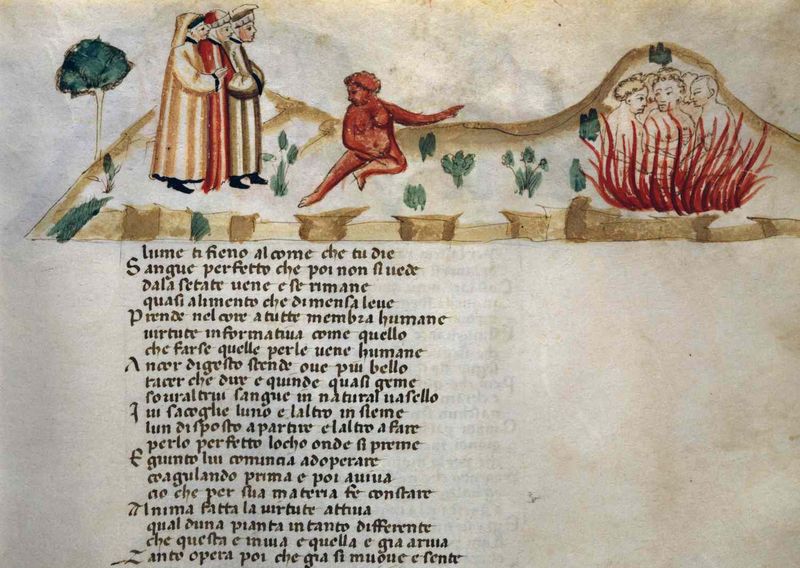 lume ti fieno al come che tu die
Sangue perfetto che poi non si uede
dala setate uene e se rimane
quasi alimento che di mensa leue
Prende nel core a tutte membra humane
uirtute informatiua come quello
che farse quelle per le uene humane
Ancor digesto scende oue piu bello
tacer che dire e quinde quasi geme
soural trui sangue in natural uasello
Iui sacoglie luno e laltro insieme
lun disposto a partire e laltro a fare
perlo perfetto locho onde si preme
E giunto lui comincia adoperare
coagulando prima e poi auiua
cio che per sua materia fe constare
Anima fatta la uirtute attiua
qual duna pianta in tanto differente
che questa e inuia e quella e gia ariua
Tanto opera poi che gia si muoue e sente